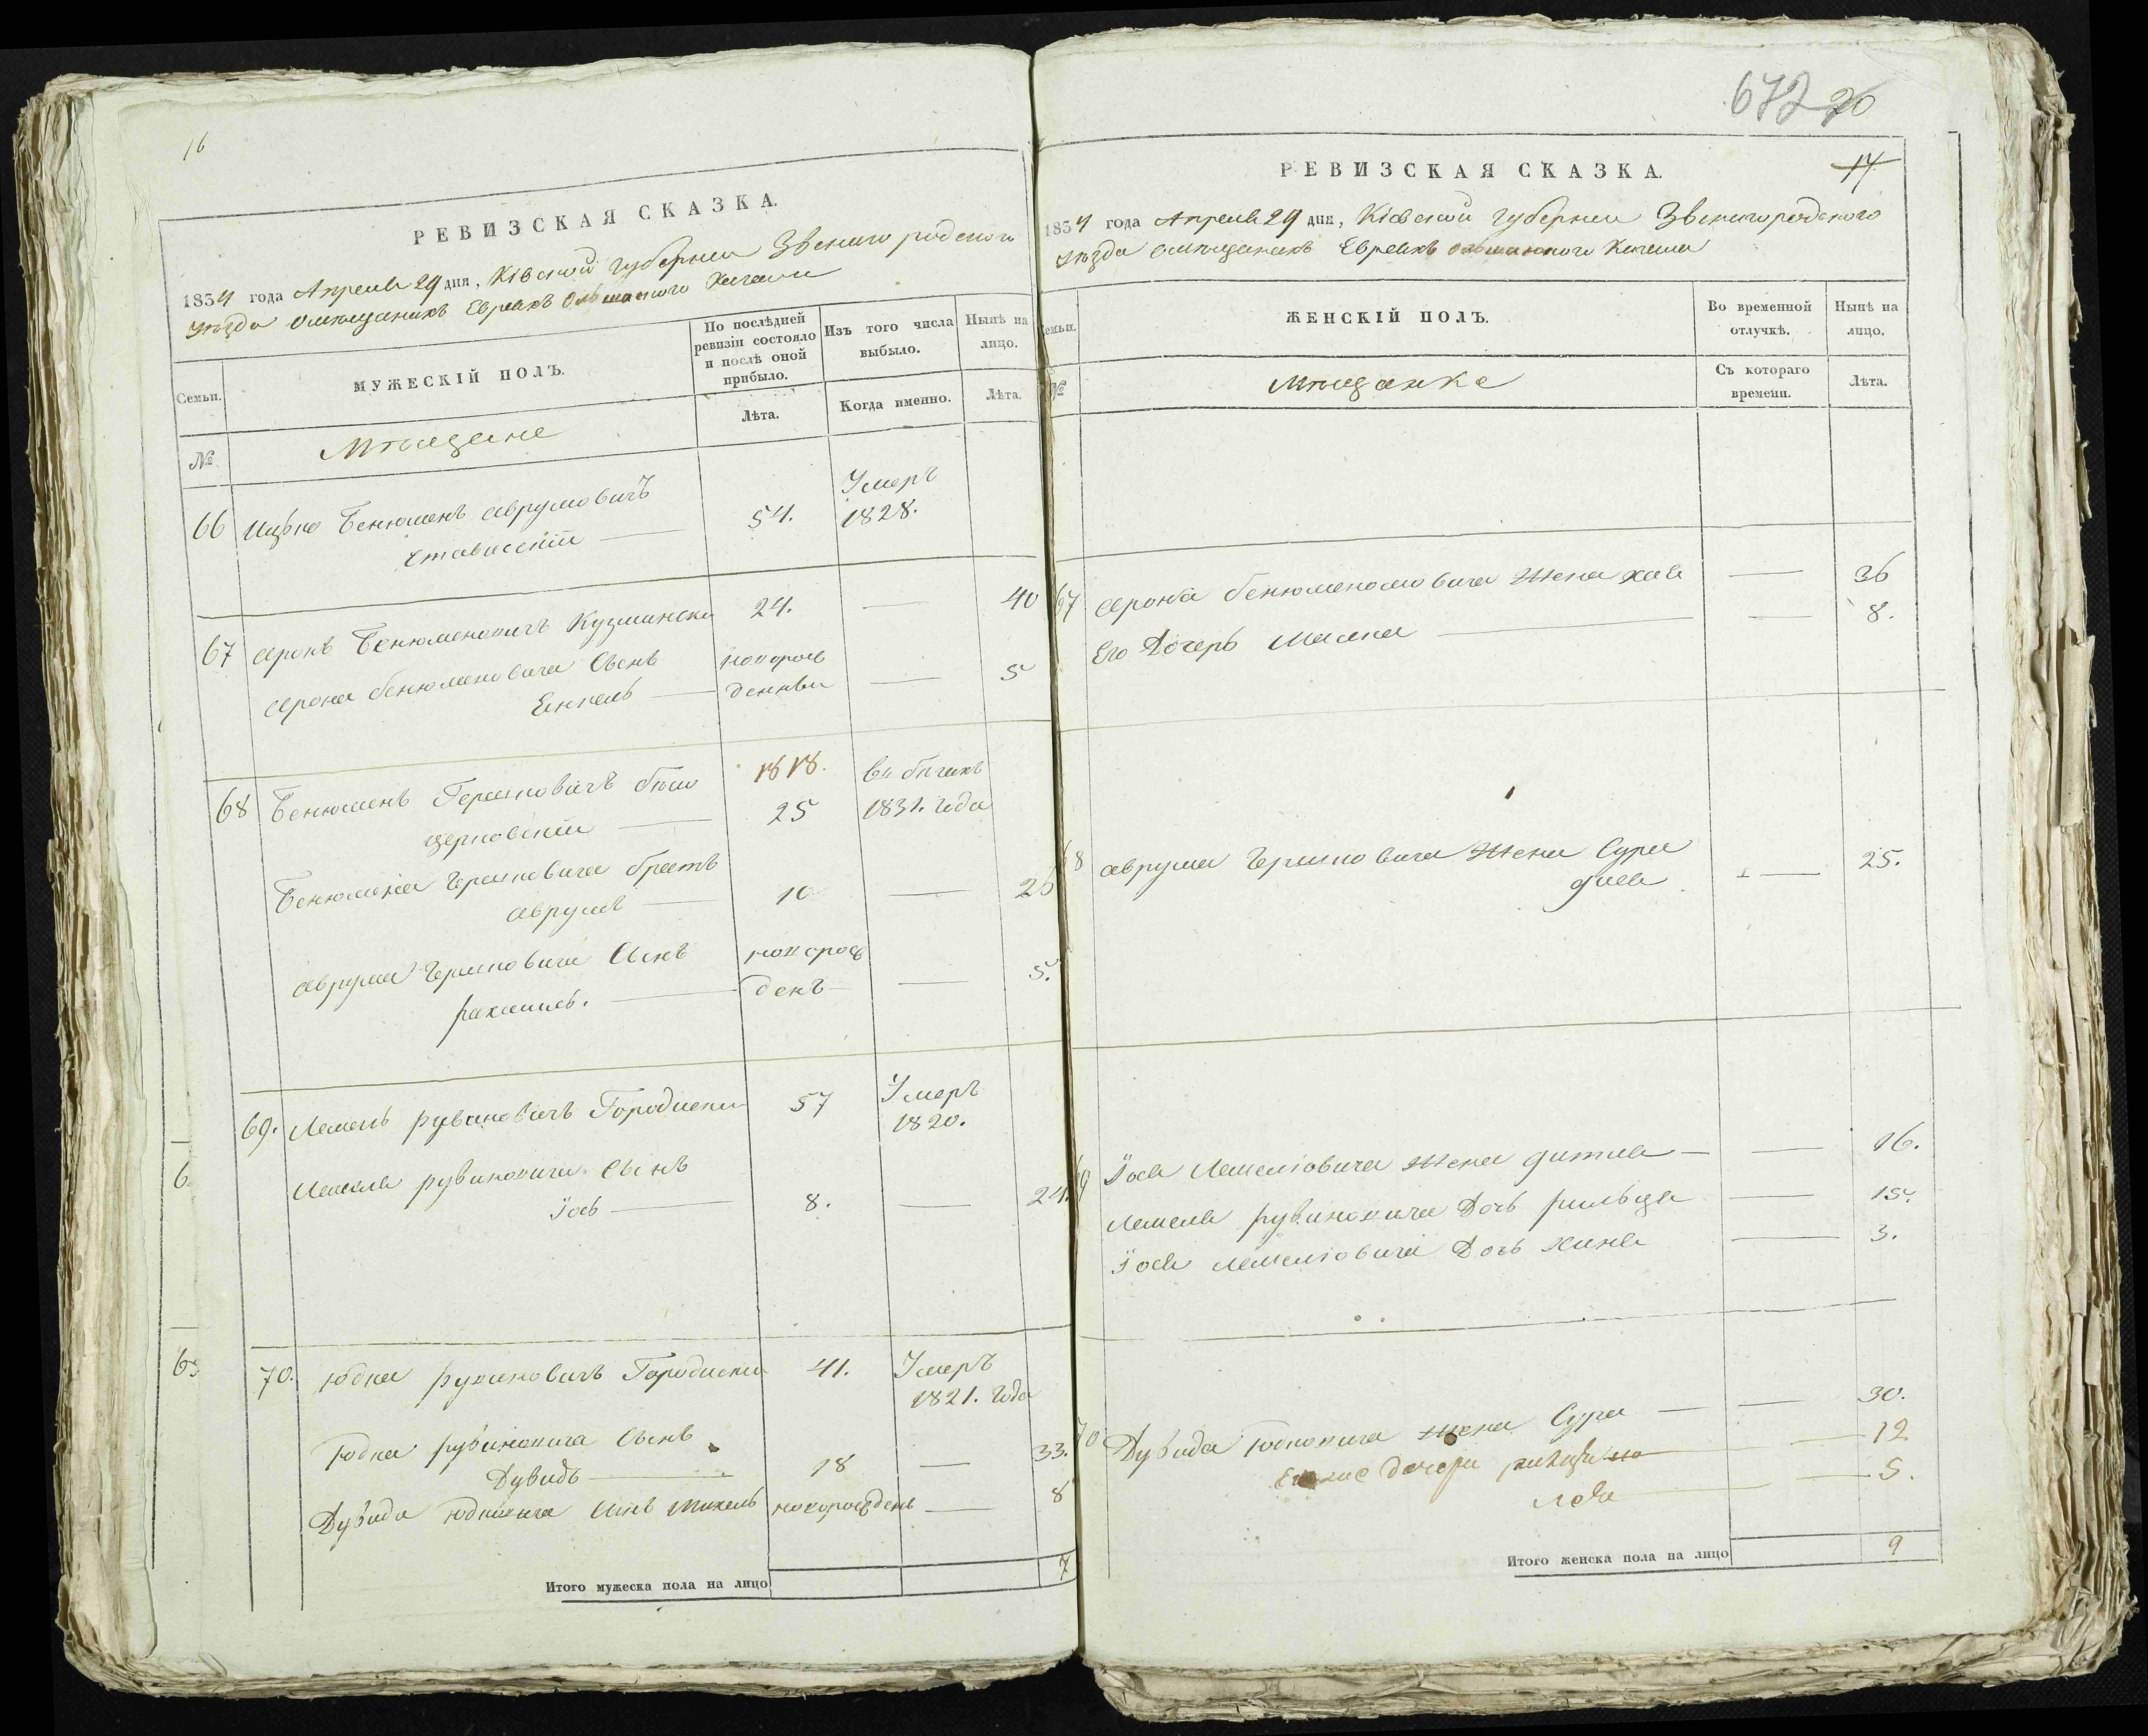 16
РЕВИЗСКАЯ СКАЗКА.
1834 года Апреля 29 дня, Кіевской губерніи Звенигородского
уѣзда о мѣщанахъ Евреяхъ Ольшанского Кагала
Семьи.
МУЖЕСКІЙ ПОЛЪ.
По послѣдней ревизіи состояло и послѣ оной прибыло.
Изъ того числа выбыло.
Нынѣ на лицо.
№
Мѣщане
Лѣта.
Когда именно.
Лѣта.
66 Ицько Бенюменъ Аврумовичъ 54. Умеръ 1828.
Ставискій
67 Аронъ Бенюменовичъ Кузмински 24. — 40
Арона Бенюменовича Сынъ новорож
Янкель — денны — 5
68 Бенюменъ Гершковичъ бѣло 1818. въ бегахъ
церковскій — 25 1831. года
Бенюмена Гершковича братъ
Аврумъ — 10 — 26
Аврума Гершковича Сынъ новорож
рахмиль. — денъ — 5.
69. Лемель рувиновичъ Городиски 57 Умеръ 1820.
Лемеля рувиновича Сынъ
Іось — 8. — 24.
70. Юдка рувиновичъ Городиски 41. Умеръ 1821. года
Юдка рувиновича Сынъ
Дувидъ — 18 — 33.
Дувида Юдковича Сынъ Михель новорожденъ — 8
Итого мужеска пола на лицо 7
672 20
РЕВИЗСКАЯ СКАЗКА. 17
1834 года Апреля 29 дня, Кіевской губерніи Звенигородского
уѣзда о мѣщанахъ Евреяхъ Ольшанского Кагала
Семьи.
ЖЕНСКІЙ ПОЛЪ.
Во временной отлучкѣ.
Нынѣ на лицо.
№
Мѣщанке
Съ котораго времени.
Лѣта.
67 Арона Бенюменовича Жена хая — 36
Его Дочерь Малка — 8.
68 Аврума Гершковича Жена Сура — 25.
69 Іося Лемелiовича Жена — 16.
Лемеля рувиновича Дочь — 15.
Іося Лемелiовича Дочь Хина — 3.
70 Дувида Юдковича Жена Сура — 30.
дочери — 12
Лея — 5.
Итого женска пола на лицо 9